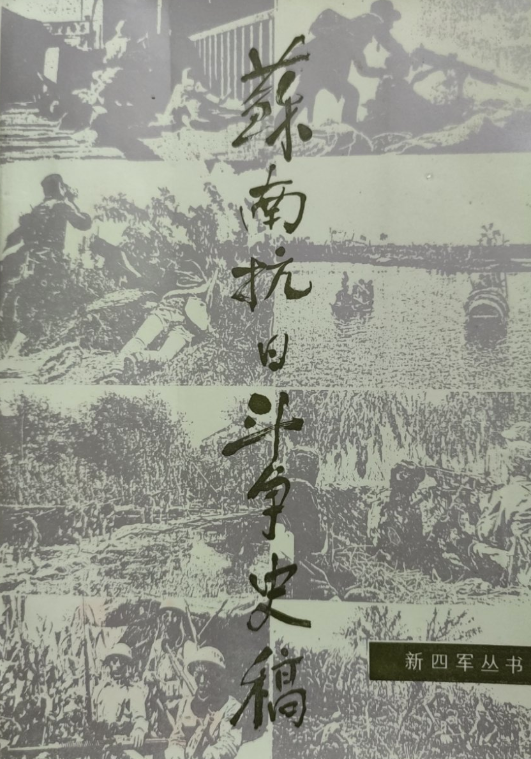 蘇南抗日斗争史稿
新四军丛书